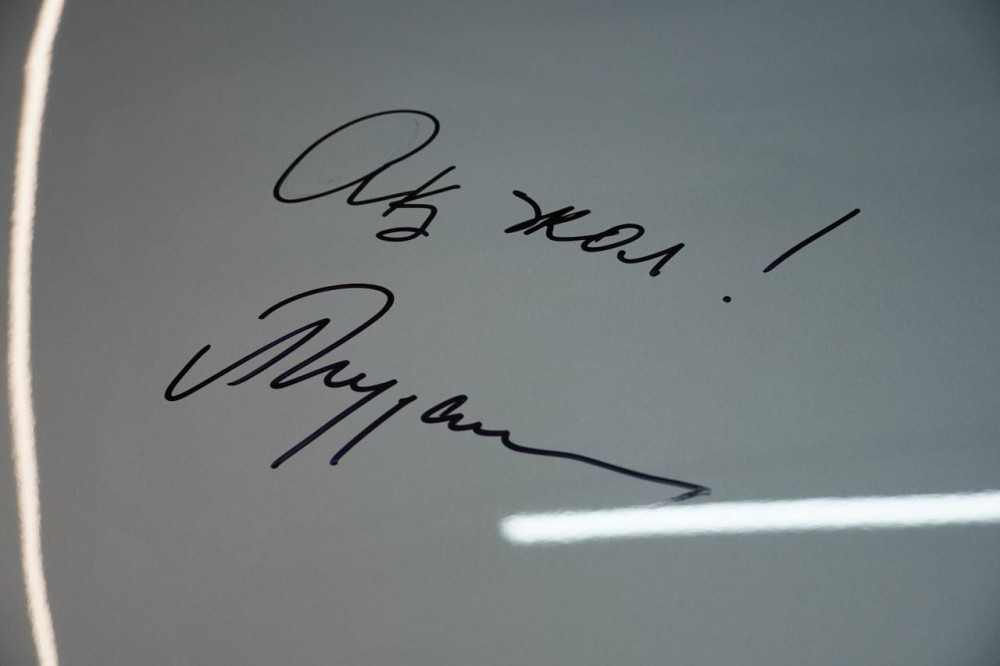 Ақ жол!